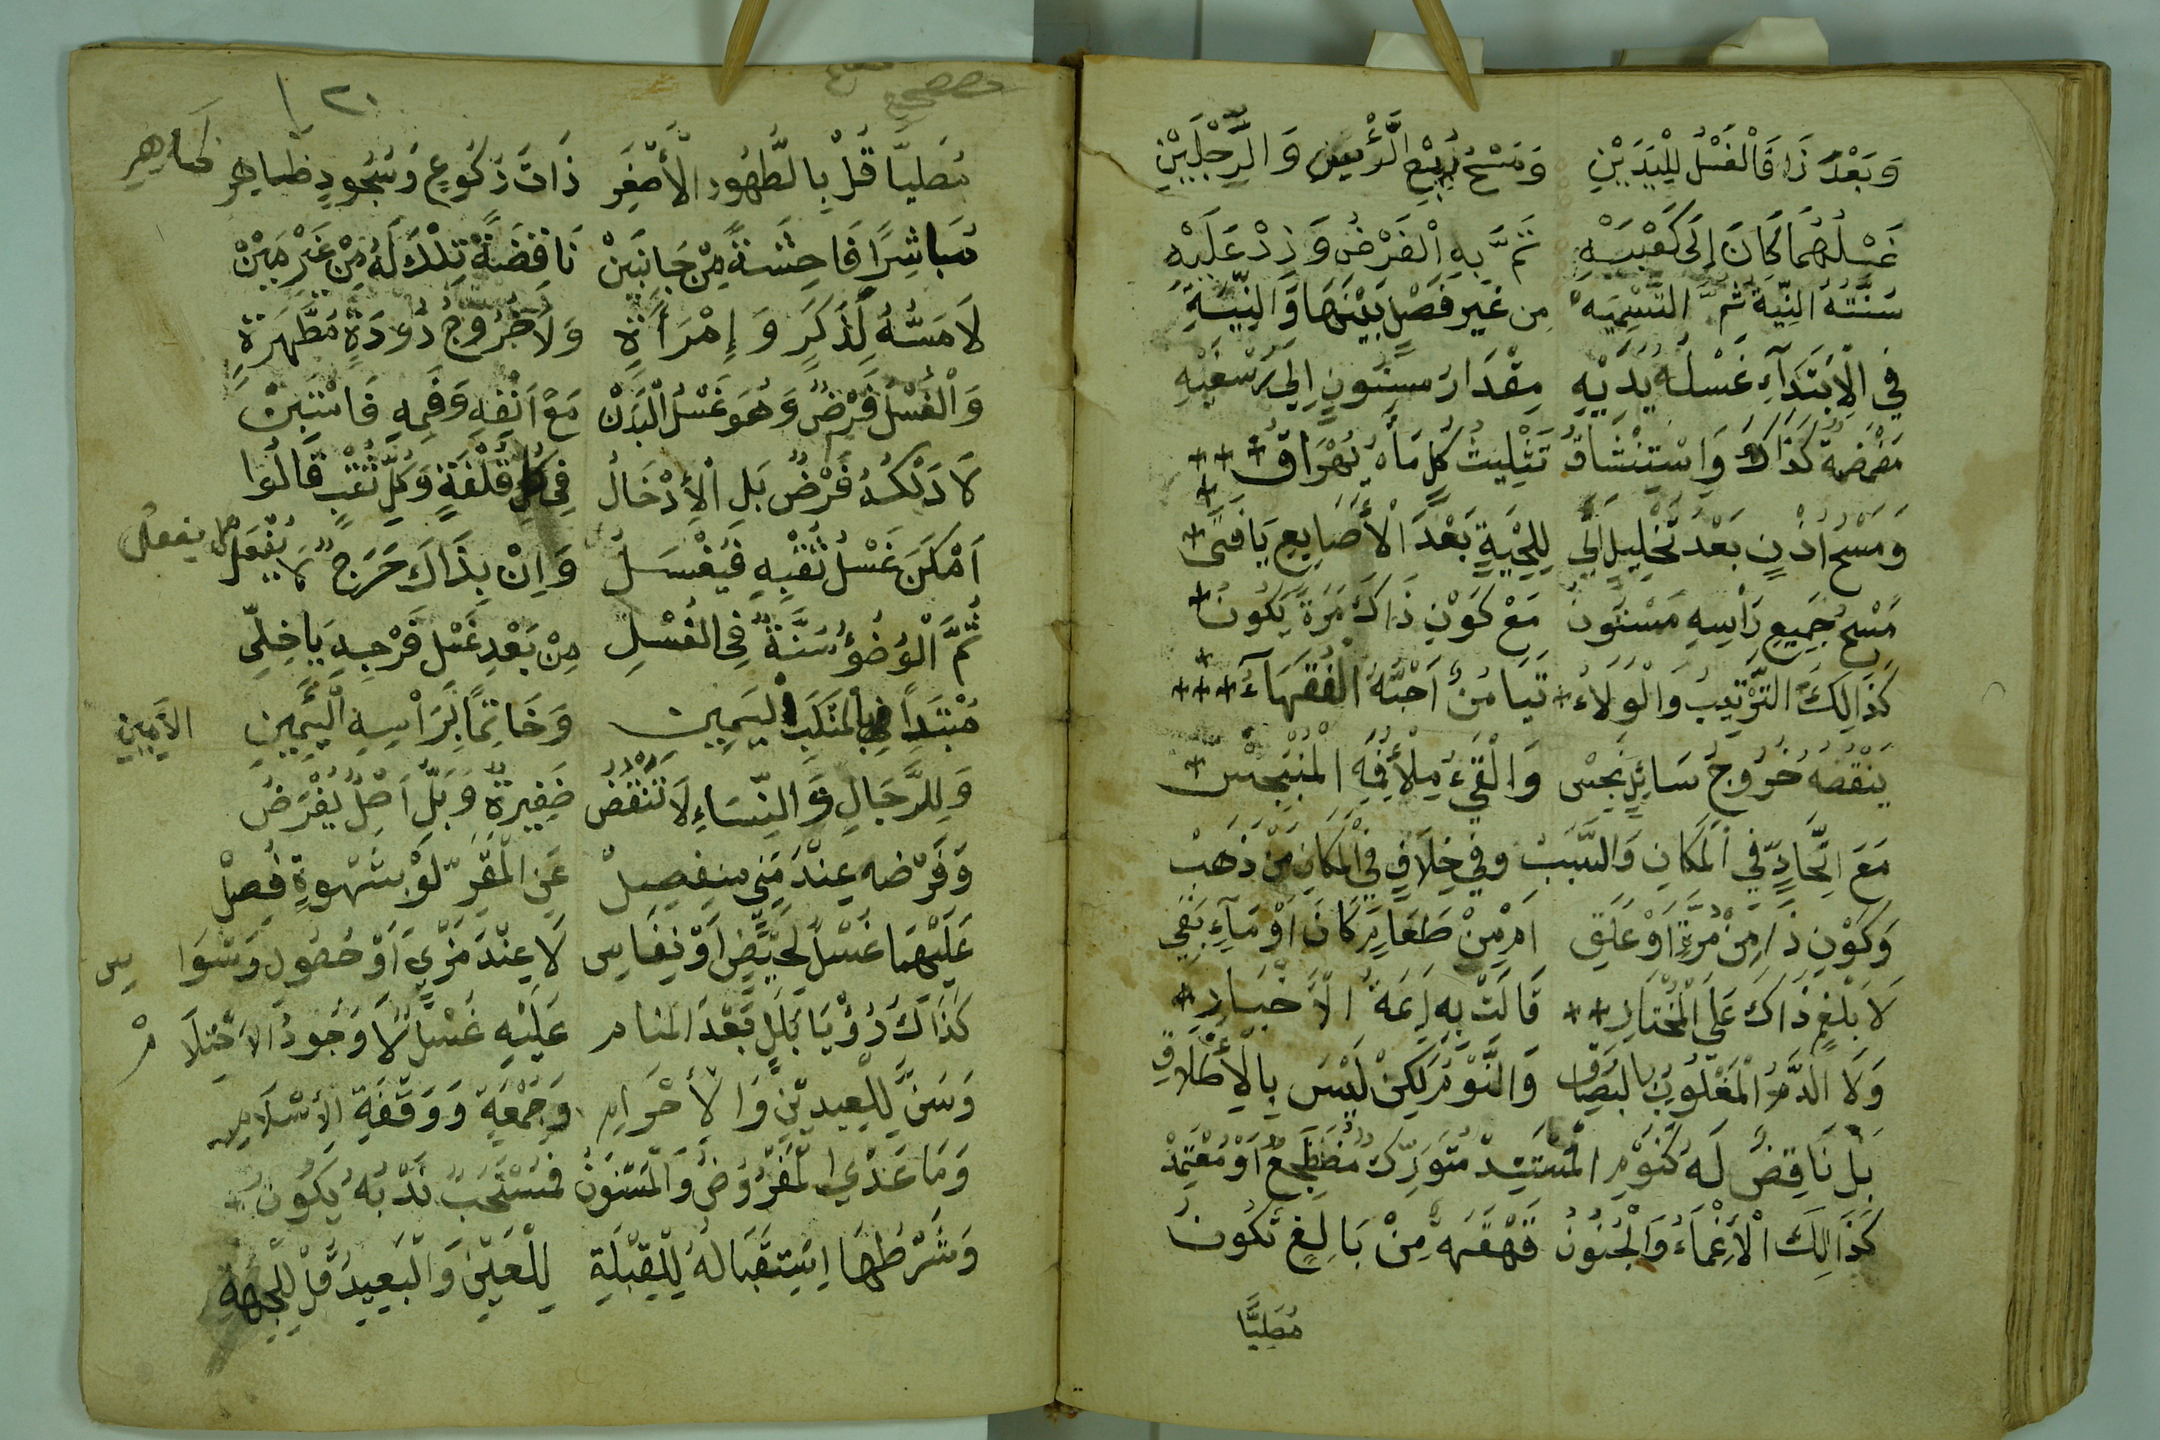 وَبَعْدَ ذَا فَالْغَسْلُ لِلْيَدَيْنِ وَمَسْحُ رُبْعِ الرَّأْسِ وَالرِّجْلَيْنِ
غَسْلُهُمَا كَانَ إِلَى كَعْبَيْهِ تَمَّ بِهِ الْفَرْضُ وَزِدْ عَلَيْهِ
سُنَّتُهُ النِّيَّةُ ثُمَّ التَّسْمِيَهْ مِن غَيْرِ فَصْلٍ بَيْنَهَا وَالنِّيَّةِ
فِي الْاِبْتِدَآءِ غَسْلُهُ يَدَيْهِ مِقْدَارُ مسنُونٍ اِلَى رُسْغَيْهِ
مَضْمَضَةٌ كَذَاكَ وَاسْتِنْشَاقُ تَثْلِيثُ كُلِّ مَاءٍ يُهْرَاقُ
وَمَسْحُ اُذْنٍ بَعْدُ تَخْلِيلٌ اَتَى لِلِحْيَةٍ بَعْدَ الْأَصَابِعِ يَا فَتَى
مَسْحُ جَمِيعِ رَأْسِهِ مَسْنُونُ مَعْ كَوْنِ ذَاكَ مَرَةً يَكُونُ
كَذَالِكَ التَّرْتِيبُ وَالْوَلَاءُ تَيَامُنٌ اَحَبَّهُ الْفُقَهَآءُ
يَنْقُضُهُ خُرُوجُ سَائِلٍ نَجِسْ وَالْقَيْءُ مِلْأَ فِيْهِ الْمُنْبَجِسْ
مَعَ اتِّحَادٍ فِي الْمَكَانِ وَالسَّبَبْ وَفِي خِلَافٍ فِي الْمَكَانِ مَنْ ذَهَبْ
وَكَوْنِ ذَا مِنْ مِرَّةٍ اَوْ عَلَقِ اَمْ مِنْ طَعَامٍ كَانَ اَوْ مَآءٍ بَقِي
لَا بَلْغَمٍ ذَاكَ عَلَى الْمُخْتَارِ قَالَتْ بِهِ اَئِمَةُ الْأَخْبَارِ
وَلَا الدَّمُ الْمَغْلُوبُ بِالْبُصَاقِ وَالنَّوْمُ لَكِنْ لَيْسَ بِالْأِطْلَاقِ
بَلْ نَاقِضٌ لَهُ كَنَوْمِ الْمُسْتَنِدْ مُتَوَرِّكٌ مُضْطَجِعٌ اَوْ مُعْتَمِدْ
كَذَالِكَ الْأِغْمَاءُ وَالْجُنُونُ قَهْقَهَةٌ مِنْ بَالِغٍ تَكُونُ
مُصَلِيًّا
٢٠
صح
مُصَلِيًّا قُلْ بِالطَّهُورِ الْأَصْغَرِ ذَاتَ رُكُوعٍ وَسُجُودٍ ظاهِرِ ظَاهِرِ
مُبَاشِرًا فَاحِشَةً مِنْ جَانِبَيْنْ نَاقِضَةٌ تِلْكَ لَهُ مِنْ غَيْرِ مَيْنْ
لَا مَسُّهُ لِذَكَرٍ وَإِمْرَأَةٍ وَلَا خُرُوجُ دُودَةٍ مُطَّهَرَةٍ
وَالْغُسْلُ فَرْضٌ وَهُوَ غَسْلُ الْبَدَنْ مَعْ اَنْفِهِ وَفَمِهِ فَاسْتَبِنْ
لَا دَلْكُهُ فَرْضٌ بَلِ الْأِدْخَالُ فِي كُلِّ قُلْفَةٍ وَكُلِّ ثُقْبٍ قَالُوا
اَمْكَنَ غَسْلُ ثُقْبِهِ فَيُغْسَلُ وَاِنْ بِذَاكَ حَرَجٌ لَا يُفْعَلُ يفعلُ
ثُمَّ الْوُضُوءُ سُنَّةٌ فِي الغُسْلِ مِنْ بَعْدِ غَسْلِ فَرْجِهِ يَا خِلِّي
مُبْتَدِأً بِالمَنْكَبِ الْيَمِينِ وَخَاتِمًا بِرَأْسِهِ الْيَمِينِ الأيمنِ
وَلِلرَّجَالِ وَالنِّسَاءِ لَا تُنْقَضُ ضَفِيرَةٌ وَبَلُّ اَصْلٍ يُفْرَضُ
وَفَرْضُه عِنْدَ مَنِيٍّ مُنفَصِلْ عَنِ الْمَقَرِّ لَوْ بِشَهْوَةٍ فُصِلْ
عَلَيْهِمَا غُسْلٌ لِحَيْضٍ اَوْ نِفَاسِ لَا عِنْدَ مَذْيٍ اَوْ حُصُولِ وَسْوَاسِ
كَذَاكَ رُؤْيَا بَلَلٍ بَعْدَ المَنَامِ عَلَيْهِ غَسْلٌ لَا وُجُودُ الاحْتِلَامْ
وَسَنَّ لِلْعِيدَيْنِ وَالْأِحْرَامِ وَجُمْعَةٍ وَوَقْفَةِ الْأِسْلَامِ
وَمَا عَدْيِ الْمَفْرُوضُ وَالْمَسْنُونُ فَمُسْتَحَبٌّ نَدْبُهُ يَكُونُ
وَشَرْطُهَا اِسْتِقْبَالُهُ لِلْقِبْلَةِ لِلْعَيْنِ وَالْبَعِيدُ قُلْ لِلْجِهَةِ